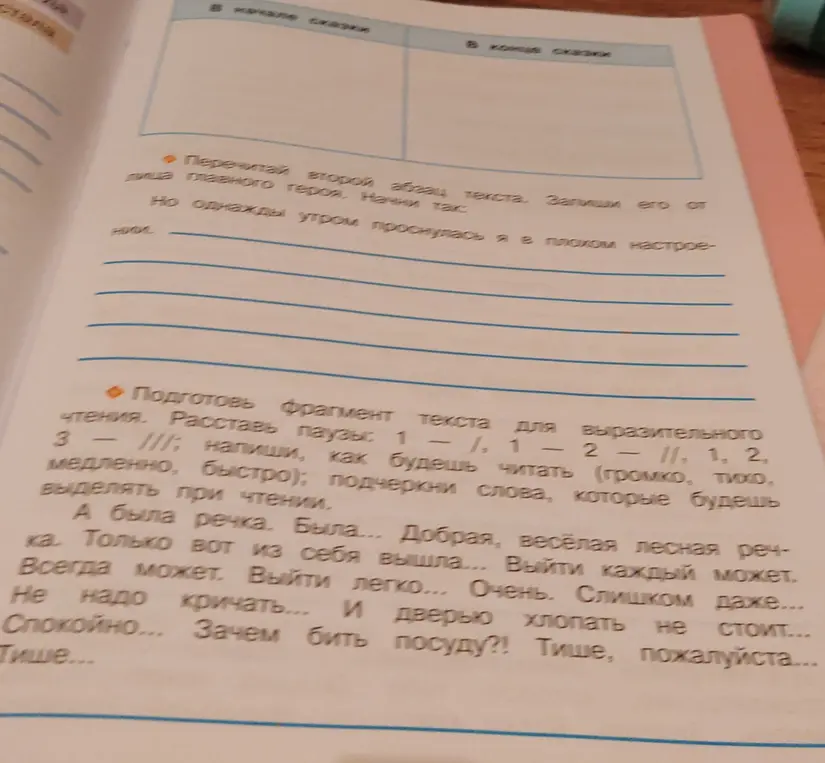 стала
В начале сказки
В конце сказки
Перечитай второй абзац текста. Запиши его от
лица главного героя. Начни так:
Но однажды утром проснулась я в плохом настрое-
нии.
Подготовь фрагмент текста для выразительного
чтения. Расставь паузы: 1 — /, 1 — 2 — //, 1, 2,
3 — ///; напиши, как будешь читать (громко, тихо,
медленно, быстро); подчеркни слова, которые будешь
выделять при чтении.
А была речка. Была... Добрая, весёлая лесная реч-
ка. Только вот из себя вышла... Выйти каждый может.
Всегда может. Выйти легко... Очень. Слишком даже...
Не надо кричать... И дверью хлопать не стоит...
Спокойно... Зачем бить посуду?! Тише, пожалуйста...
Тише...